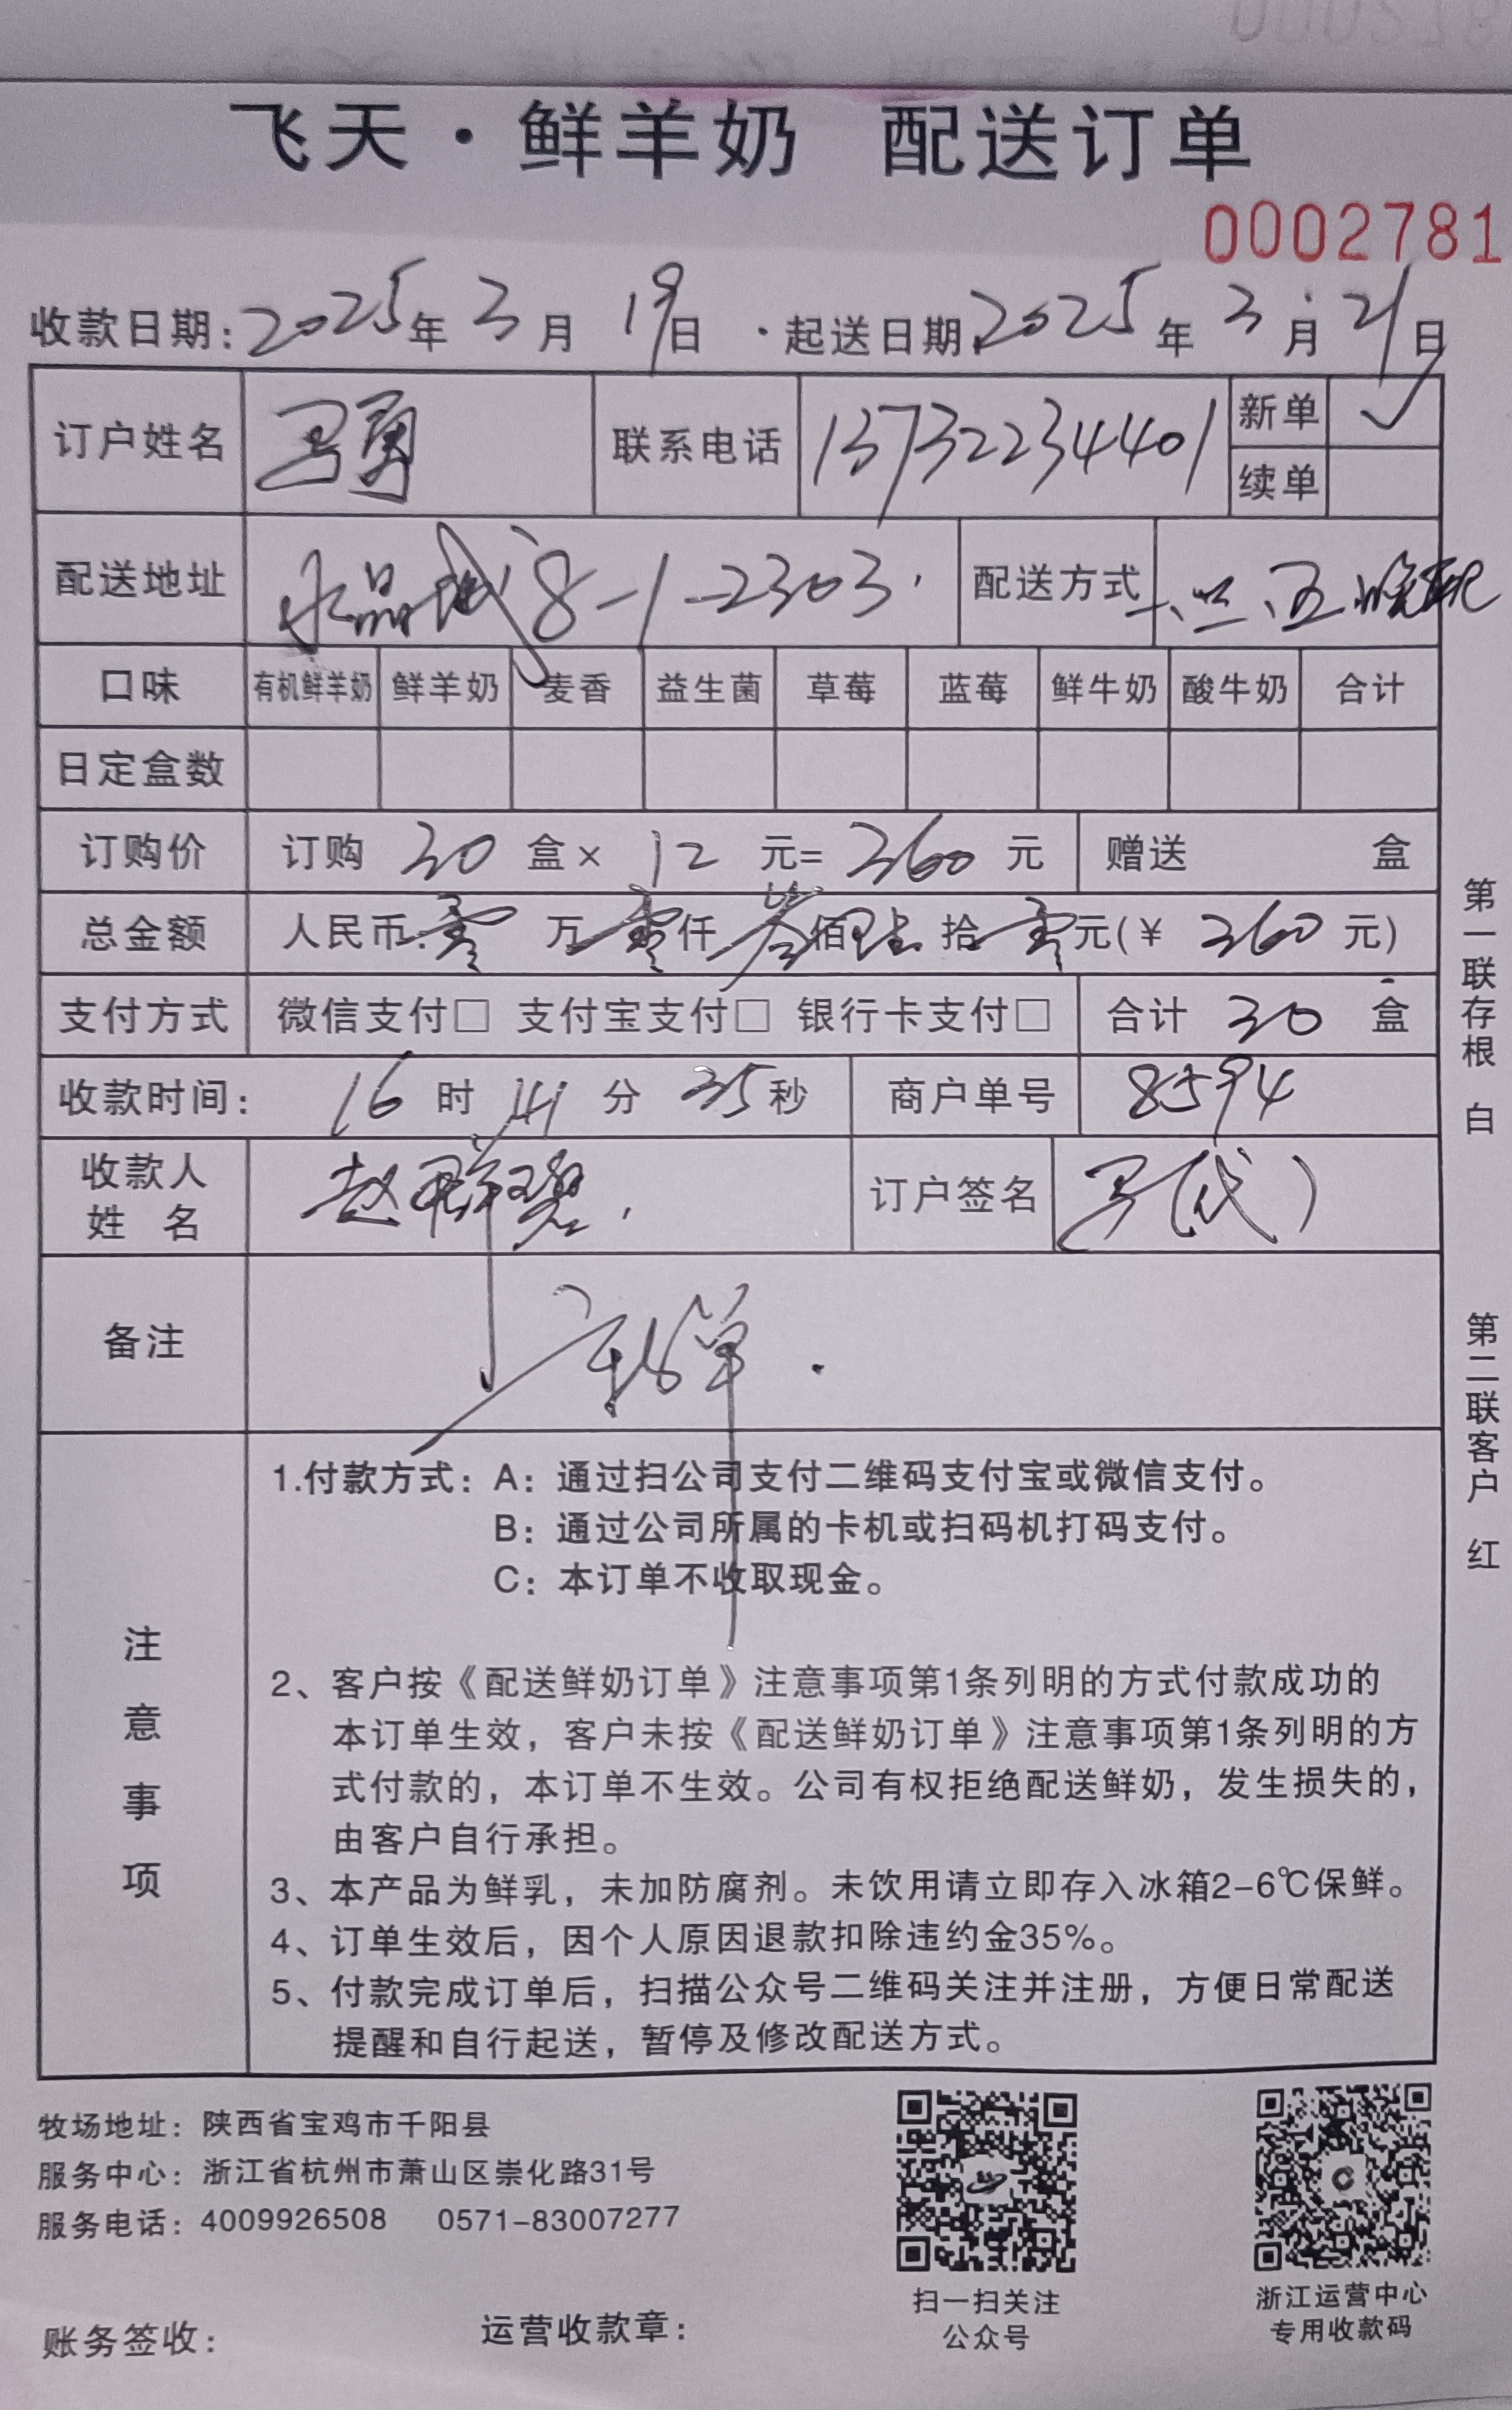 飞天·鲜羊奶 配送订单
0002781
收款日期：2025年3月19日 ·起送日期：2025年3月21日
订户姓名 马勇 联系电话 13732234401 新单 ✓
续单
配送地址 水晶城8-1-2303 配送方式 一、三、五
口味 有机鲜羊奶 鲜羊奶 麦香 益生菌 草莓 蓝莓 鲜牛奶 酸牛奶 合计
日定盒数
订购价 订购 30 盒× 12 元= 360 元 赠送 盒
总金额 人民币：零万零仟叁佰陆拾零元(￥ 360 元)
支付方式 微信支付□ 支付宝支付□ 银行卡支付□ 合计 30 盒
收款时间： 16 时 141 分 35 秒 商户单号 8594
收款人
姓 名 赵 订户签名 马(代)
备注 单.
注意事项
1.付款方式：A：通过扫公司支付二维码支付宝或微信支付。
B：通过公司所属的卡机或扫码机打码支付。
C：本订单不收取现金。
2、客户按《配送鲜奶订单》注意事项第1条列明的方式付款成功的
本订单生效，客户未按《配送鲜奶订单》注意事项第1条列明的方
式付款的，本订单不生效。公司有权拒绝配送鲜奶，发生损失的，
由客户自行承担。
3、本产品为鲜乳，未加防腐剂。未饮用请立即存入冰箱2-6℃保鲜。
4、订单生效后，因个人原因退款扣除违约金35%。
5、付款完成订单后，扫描公众号二维码关注并注册，方便日常配送
提醒和自行起送，暂停及修改配送方式。
第一联存根 白
第二联客户 红
牧场地址：陕西省宝鸡市千阳县
服务中心：浙江省杭州市萧山区崇化路31号
服务电话：4009926508 0571-83007277
扫一扫关注
公众号
浙江运营中心
专用收款码
账务签收：
运营收款章：